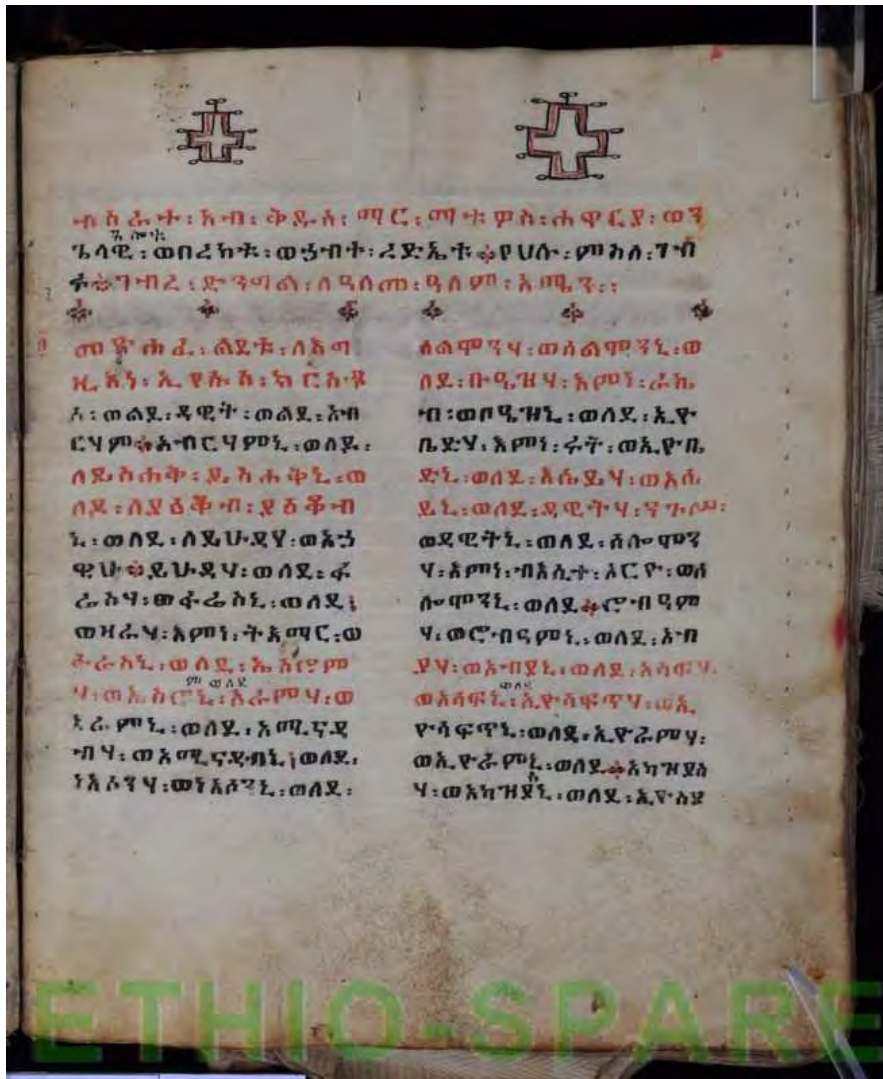 ብስራተ፡ አብ፡ ቅዱስ፡ ማር፡ ማቴዎስ፡ ሐዋርያ፡ ወን
ጌላዊ፡ ወበረከቱ፡ ወሀብተ፡ ረድኤቱ፨የሀሉ፡ ምስለ፡ ገብ
ሩ፨ገብረ፡ ድንግል፡ ለዓለመ፡ ዓለም፡ አሜን፡፡
መጽሐፈ፡ ልደቱ፡ ለእግ
ዚእነ፡ ኢየሱስ፡ ክርስቶ
ስ፡ ወልደ፡ ዳዊት፡ ወልደ፡ አብ
ርሃም፨አብርሃምኒ፡ ወለደ፡
ለይስሐቅ፡ ይስሐቅኒ፡ ወ
ለደ፡ ለያዕቆብ፡ ያዕቆብ
ኒ፡ ወለደ፡ ለይሁዳሃ፡ ወአኃ
ዊሁ፨ይሁዳሃ፡ ወለደ፡ ፋ
ሬስሃ፡ ወፋሬስኒ፡ ወለደ፤
ወዛራሃ፡ እምነ፡ ትእማር፡ ወ
ፋሬስኒ፡ ወለደ፡ ኤስሮም
ሃ፡ ወኤስሮኒ፡ አራምሃ፡ ወ
አራምኒ፡ ወለደ፡ አሚናዳ
ብሃ፡ ወአሚናዳብኒ፤ ወለደ፡
ነአሶንሃ፡ ወነአሶንኒ፡ ወለደ፡
ሰልሞንሃ፡ ወሰልሞንኒ፡ ወ
ለደ፡ ቡዔዝሃ፡ እምነ፡ ራኬ
ብ፡ ወቦዔዝኒ፡ ወለደ፡ ኢዮ
ቤድሃ፡ እምነ፡ ሩት፡ ወኢዮቤ
ድኒ፡ ወለደ፡ እሴይሃ፡ ወእሴ
ይኒ፡ ወለደ፡ ዳዊትሃ፡ ንጉሠ፡
ወዳዊትኒ፡ ወለደ፡ ሰሎሞን
ሃ፡ እምነ፡ ብእሲተ፡ ኦርዮ፡ ወሰ
ሎሞንኒ፡ ወለደ፨ሮብዓም
ሃ፡ ወሮብዓምኒ፡ ወለደ፡ አብ
ያሃ፡ ወአብያኒ፡ ወለደ፡ አሳፍሃ
ወአሳፍኒ፡ ወለደ፡ ኢዮሳፍጥሃ፡ ወኢ
ዮሳፍጥኒ፡ ወለደ፡ ኢዮራምሃ፡
ወኢዮራምኒ፡ ወለደ፨አካዝያስ
ሃ፡ ወአካዝያስኒ፡ ወለደ፡ ኢዮስያ
ETHIO-SPARE